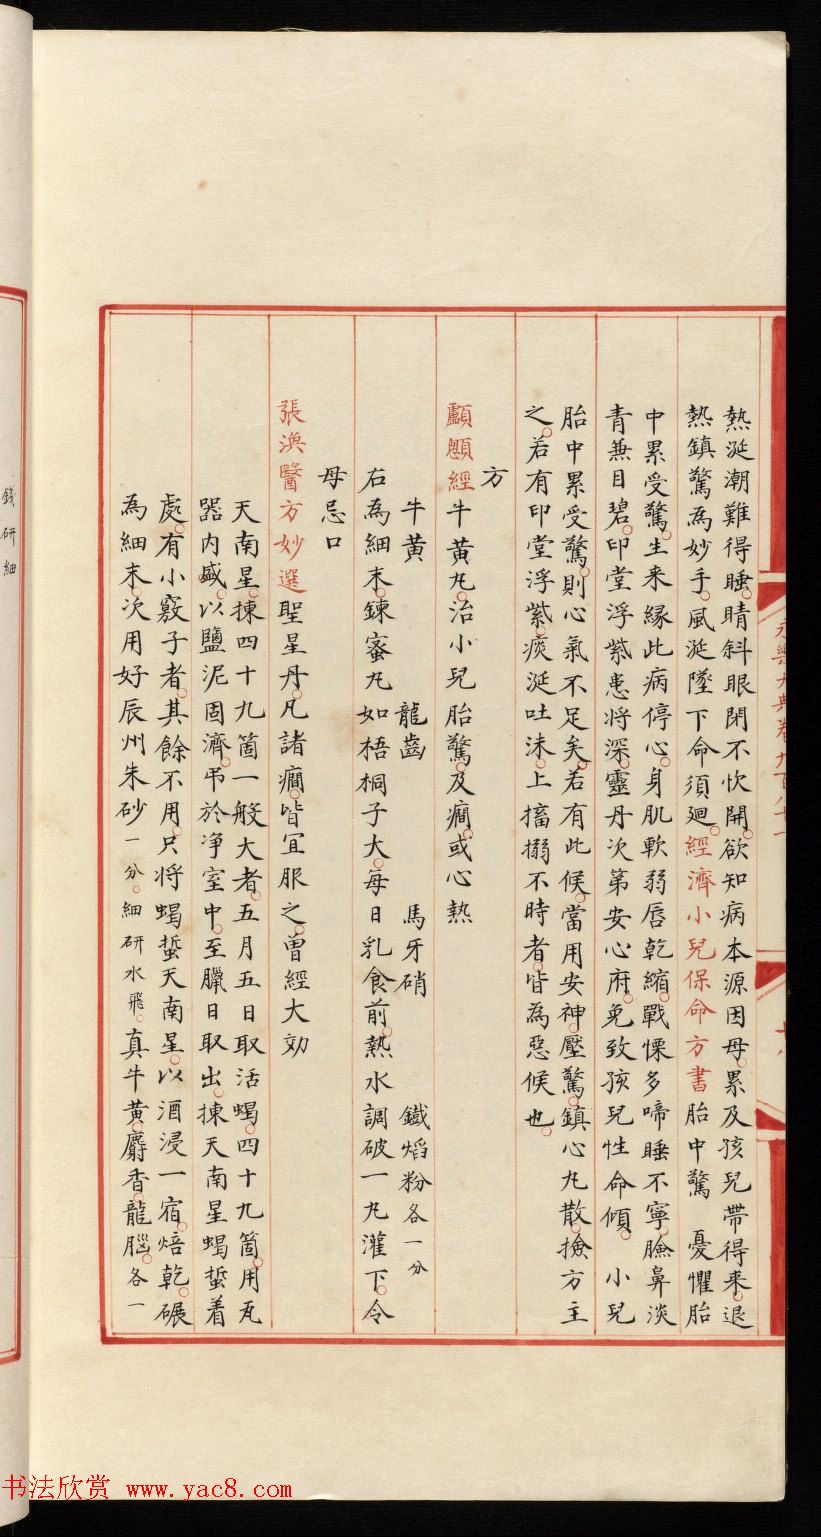 永樂大典卷九百八十一
熱涎潮難得睡睛斜眼閉不忺開欲知病本源因母累及孩兒帶得來退
熱鎮驚為妙手風涎墜下命須廻經濟小兒保命方書胎中驚 憂懼胎
中累受驚生來緣此病停心身肌軟弱唇乾縮戰慄多啼睡不寧臉鼻淡
青兼目碧印堂浮紫患將深靈丹次第安心府免致孩兒性命傾 小兒
胎中累受驚則心氣不足矣若有此候當用安神壓驚鎮心丸散撿方主
之若有印堂浮紫痰涎吐沫上搐搦不時者皆為惡候也
方
顱顖經牛黃丸治小兒胎驚及癇或心熱
牛黃 龍齒 馬牙硝 鐵焰粉各一分
右為細末鍊蜜丸如梧桐子大每日乳食前熱水調破一丸灌下令
母忌口
張渙醫方妙選聖星丹凡諸癇皆宜服之曾經大効
天南星揀四十九箇一般大者五月五日取活蝎四十九箇用瓦
器內盛以鹽泥固濟弔於淨室中至臘日取出揀天南星蝎蜇着
處有小竅子者其餘不用只將蝎蜇天南星以酒浸一宿焙乾碾
為細末次用好辰州朱砂一分細研水飛真牛黃麝香龍腦各一
錢研細
书法欣赏 www.yac8.com